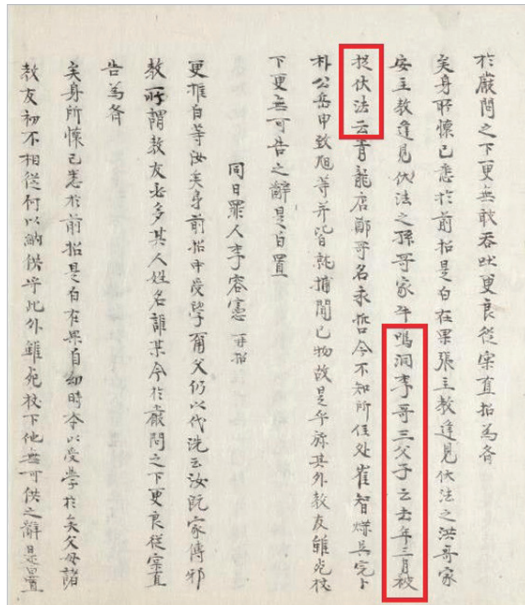 於嚴問之下更無敢呑吐更良從實直招爲斉
矣身所懷已悉於前招是白在果張主敎逢見伏法之洪哥家
安主敎逢見伏法之孫哥家牛鳴洞李哥三父子云去年三月被
捉伏法云青龍店鄭哥名永哲今不知所住处崔智爀具完卜
朴公岳申致旭等并皆就捕聞已物故是乎旀其外敎友雖死杖
下更無可告之辭是白置
同日罪人李容憲再招
更推白等汝矣身前招中受學爾父仍以代洗云汝既家傳邪
敎所謂敎友必多其人姓名誰某今於嚴問之下更良從實直
告爲斉
矣身所懷已悉於前招是白在果自幼時今以受學於矣父母諸
敎友初不相從何以納供乎此外雖死杖下他無可供之辭是置